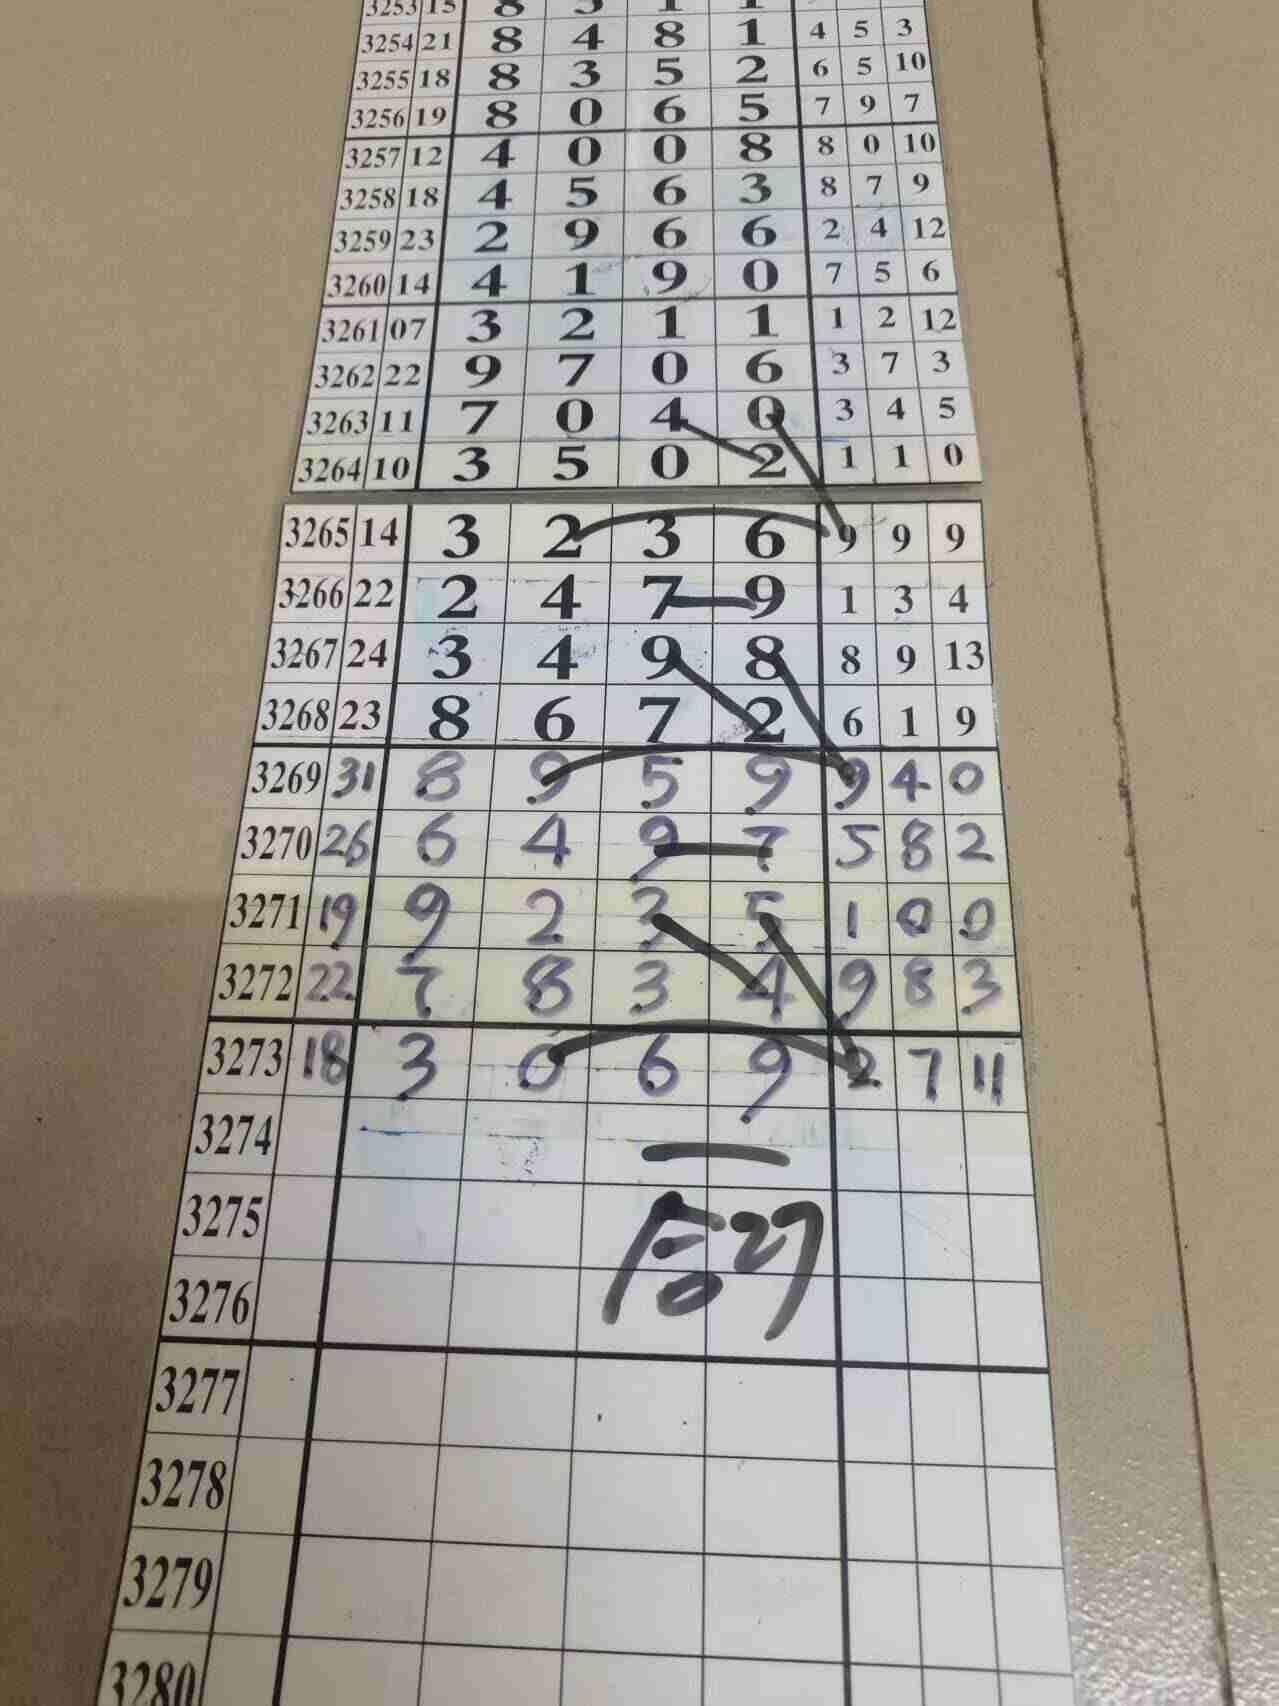 3253 15 8 3 1 1
3254 21 8 4 8 1 4 5 3
3255 18 8 3 5 2 6 5 10
3256 19 8 0 6 5 7 9 7
3257 12 4 0 0 8 8 0 10
3258 18 4 5 6 3 8 7 9
3259 23 2 9 6 6 2 4 12
3260 14 4 1 9 0 7 5 6
3261 07 3 2 1 1 1 2 12
3262 22 9 7 0 6 3 7 3
3263 11 7 0 4 0 3 4 5
3264 10 3 5 0 2 1 1 0
3265 14 3 2 3 6 9 9 9
3266 22 2 4 7 9 1 3 4
3267 24 3 4 9 8 8 9 13
3268 23 8 6 7 2 6 1 9
3269 31 8 9 5 9 9 4 0
3270 26 6 4 9 7 5 8 2
3271 19 9 2 3 5 1 0 0
3272 22 7 8 3 4 9 8 3
3273 18 3 0 6 9 2 7 11
3274
3275
合27
3276
3277
3278
3279
3280